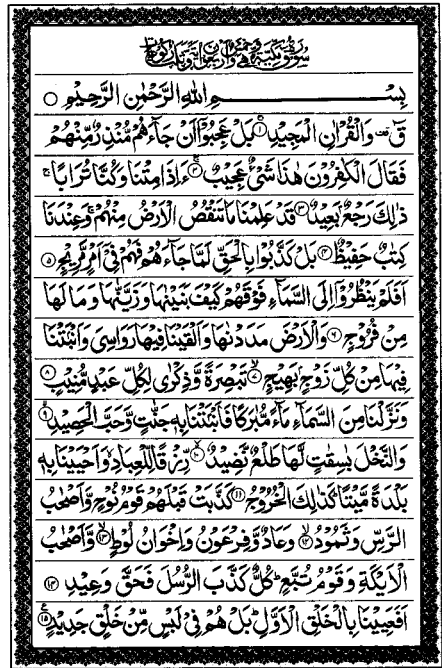 سورة ق مكية وهي خمس واربعون اية وثلث ركوعات
بِسْمِ اللهِ الرَّحْمٰنِ الرَّحِيْمِ ○
قٓ ۚ وَالْقُرْاٰنِ الْمَجِيْدِ ۝۱ بَلْ عَجِبُوْۤا اَنْ جَآءَهُمْ مُّنْذِرٌ مِّنْهُمْ
فَقَالَ الْكٰفِرُوْنَ هٰذَا شَیْءٌ عَجِيْبٌ ۝۲ ءَاِذَا مِتْنَا وَكُنَّا تُرَابًا ۚ
ذٰلِكَ رَجْعٌۢ بَعِيْدٌ ۝۳ قَدْ عَلِمْنَا مَا تَنْقُصُ الْاَرْضُ مِنْهُمْ ۚ وَعِنْدَنَا
كِتٰبٌ حَفِيْظٌ ۝۴ بَلْ كَذَّبُوْا بِالْحَقِّ لَمَّا جَآءَهُمْ فَهُمْ فِیْۤ اَمْرٍ مَّرِيْجٍ ۝۵
اَفَلَمْ يَنْظُرُوْۤا اِلَی السَّمَآءِ فَوْقَهُمْ كَيْفَ بَنَيْنٰهَا وَزَيَّنّٰهَا وَمَا لَهَا
مِنْ فُرُوْجٍ ۝۶ وَالْاَرْضَ مَدَدْنٰهَا وَاَلْقَيْنَا فِيْهَا رَوَاسِیَ وَاَنْۢبَتْنَا
فِيْهَا مِنْ كُلِّ زَوْجٍۭ بَهِيْجٍ ۝۷ تَبْصِرَةً وَّذِكْرٰی لِكُلِّ عَبْدٍ مُّنِيْبٍ ۝۸
وَنَزَّلْنَا مِنَ السَّمَآءِ مَآءً مُّبٰرَكًا فَاَنْۢبَتْنَا بِهٖ جَنّٰتٍ وَّحَبَّ الْحَصِيْدِ ۝۹
وَالنَّخْلَ بٰسِقٰتٍ لَّهَا طَلْعٌ نَّضِيْدٌ ۝۱۰ رِّزْقًا لِّلْعِبَادِ ۙ وَاَحْيَيْنَا بِهٖ
بَلْدَةً مَّيْتًا ؕ كَذٰلِكَ الْخُرُوْجُ ۝۱۱ كَذَّبَتْ قَبْلَهُمْ قَوْمُ نُوْحٍ وَّاَصْحٰبُ
الرَّسِّ وَثَمُوْدُ ۝۱۲ وَعَادٌ وَّفِرْعَوْنُ وَاِخْوَانُ لُوْطٍ ۝۱۳ وَّاَصْحٰبُ
الْاَيْكَةِ وَقَوْمُ تُبَّعٍ ؕ كُلٌّ كَذَّبَ الرُّسُلَ فَحَقَّ وَعِيْدِ ۝۱۴
اَفَعَيِيْنَا بِالْخَلْقِ الْاَوَّلِ ؕ بَلْ هُمْ فِیْ لَبْسٍ مِّنْ خَلْقٍ جَدِيْدٍ ۝۱۵